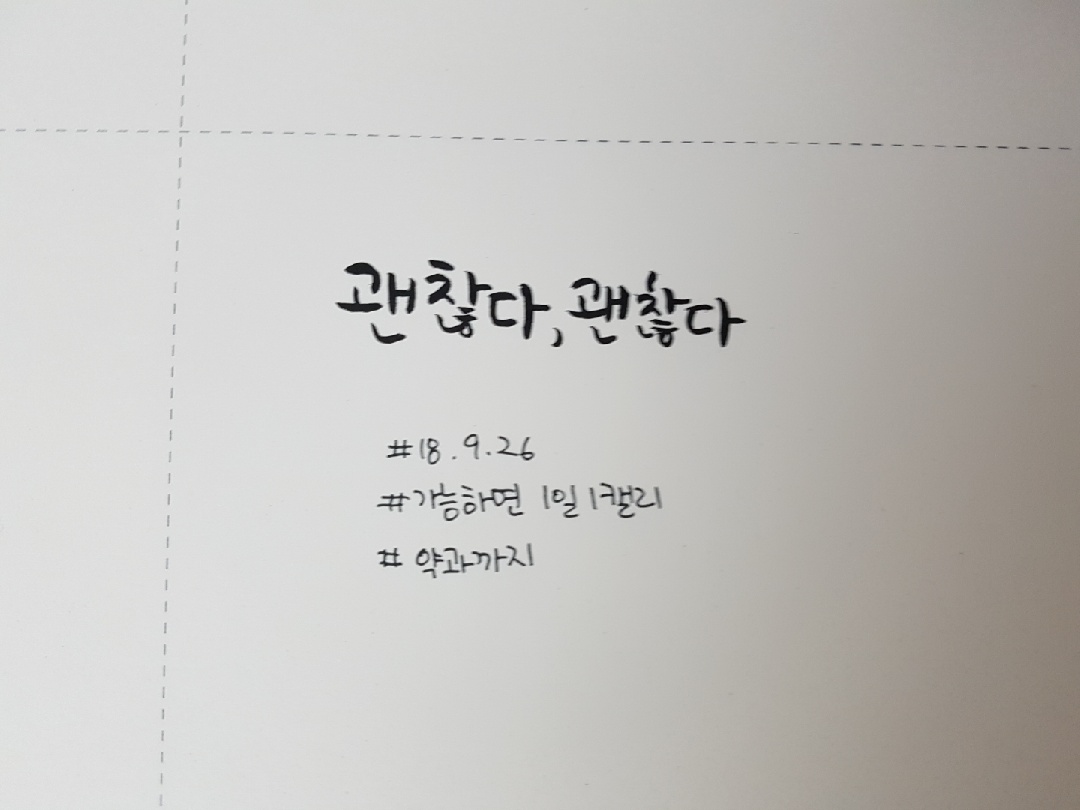 괜찮다, 괜찮다
#18.9.26
#가능하면 1일 1캘리
# 약과까지